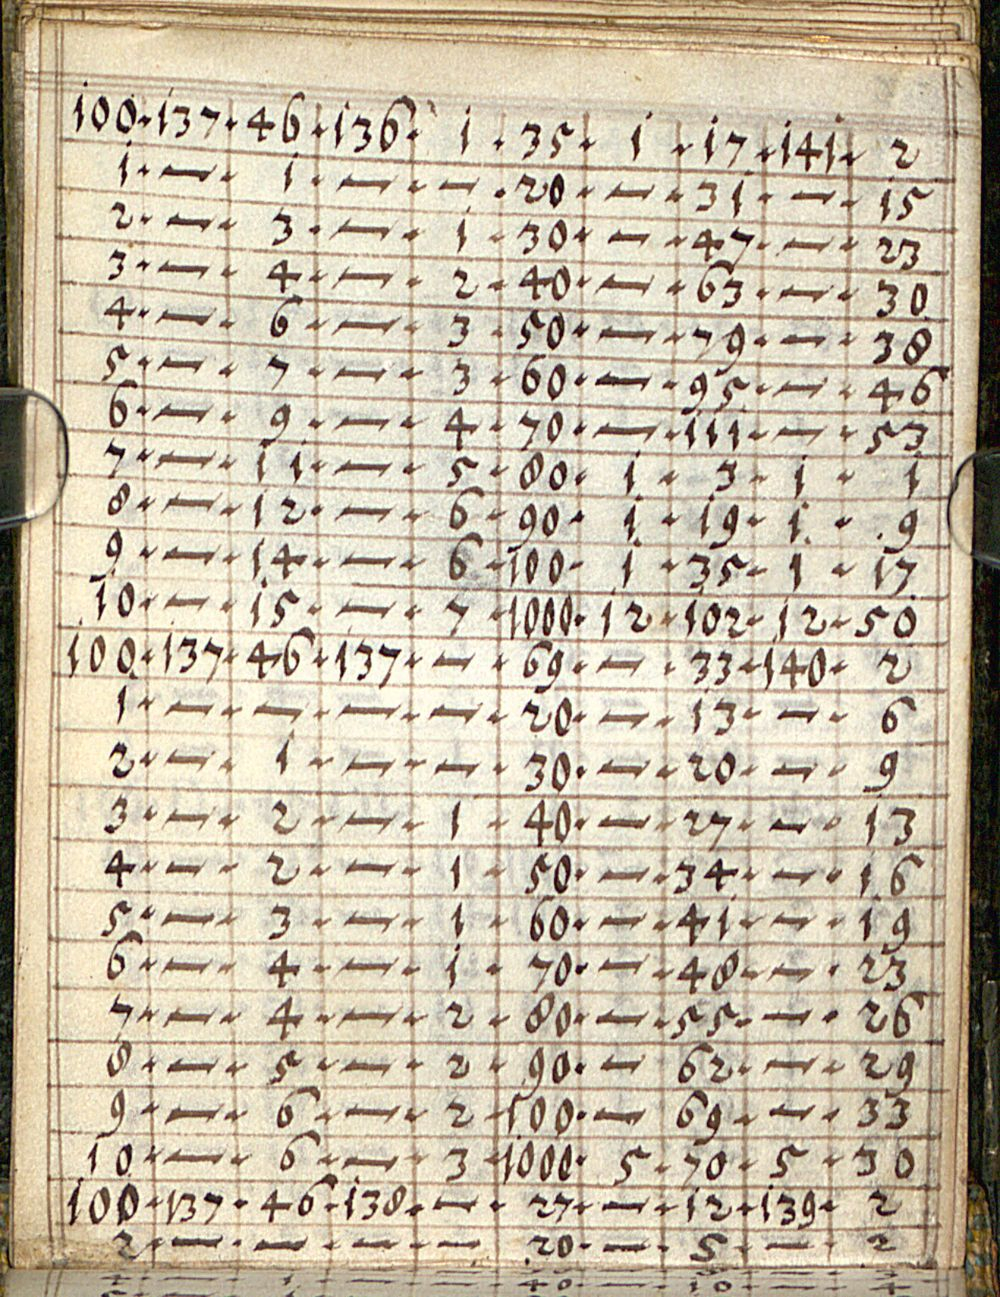 100 · 137 · 46 · 136 · 1 · 35 · 1 · 17 · 141 · 2
1 · — · 1 · — · — · 20 · — · 31 · — · 15
2 · — · 3 · — · 1 · 30 · — · 47 · — · 23
3 · — · 4 · — · 2 · 40 · — · 63 · — · 30
4 · — · 6 · — · 3 · 50 · — · 79 · — · 38
5 · — · 7 · — · 3 · 60 · — · 95 · — · 46
6 · — · 9 · — · 4 · 70 · — · 111 · — · 53
7 · — · 11 · — · 5 · 80 · 1 · 3 · 1 · 1
8 · — · 12 · — · 6 · 90 · 1 · 19 · 1 · 9
9 · — · 14 · — · 6 · 100 · 1 · 35 · 1 · 17
10 · — · 15 · — · 7 · 1000 · 12 · 102 · 12 · 50
100 · 137 · 46 · 137 · — · 69 · — · 33 · 140 · 2
1 · — · — · — · — · 20 · — · 13 · — · 6
2 · — · 1 · — · — · 30 · — · 20 · — · 9
3 · — · 2 · — · 1 · 40 · — · 27 · — · 13
4 · — · 2 · — · 1 · 50 · — · 34 · — · 16
5 · — · 3 · — · 1 · 60 · — · 41 · — · 19
6 · — · 4 · — · 1 · 70 · — · 48 · — · 23
7 · — · 4 · — · 2 · 80 · — · 55 · — · 26
8 · — · 5 · — · 2 · 90 · — · 62 · — · 29
9 · — · 6 · — · 2 · 100 · — · 69 · — · 33
10 · — · 6 · — · 3 · 1000 · 5 · 70 · 5 · 30
100 · 137 · 46 · 138 · — · 27 · — · 12 · 139 · 2
2 · — · — · — · — · 20 · — · 5 · — · 2
4 · — · 1 · — · — · 40 · — · 10 · — · 4